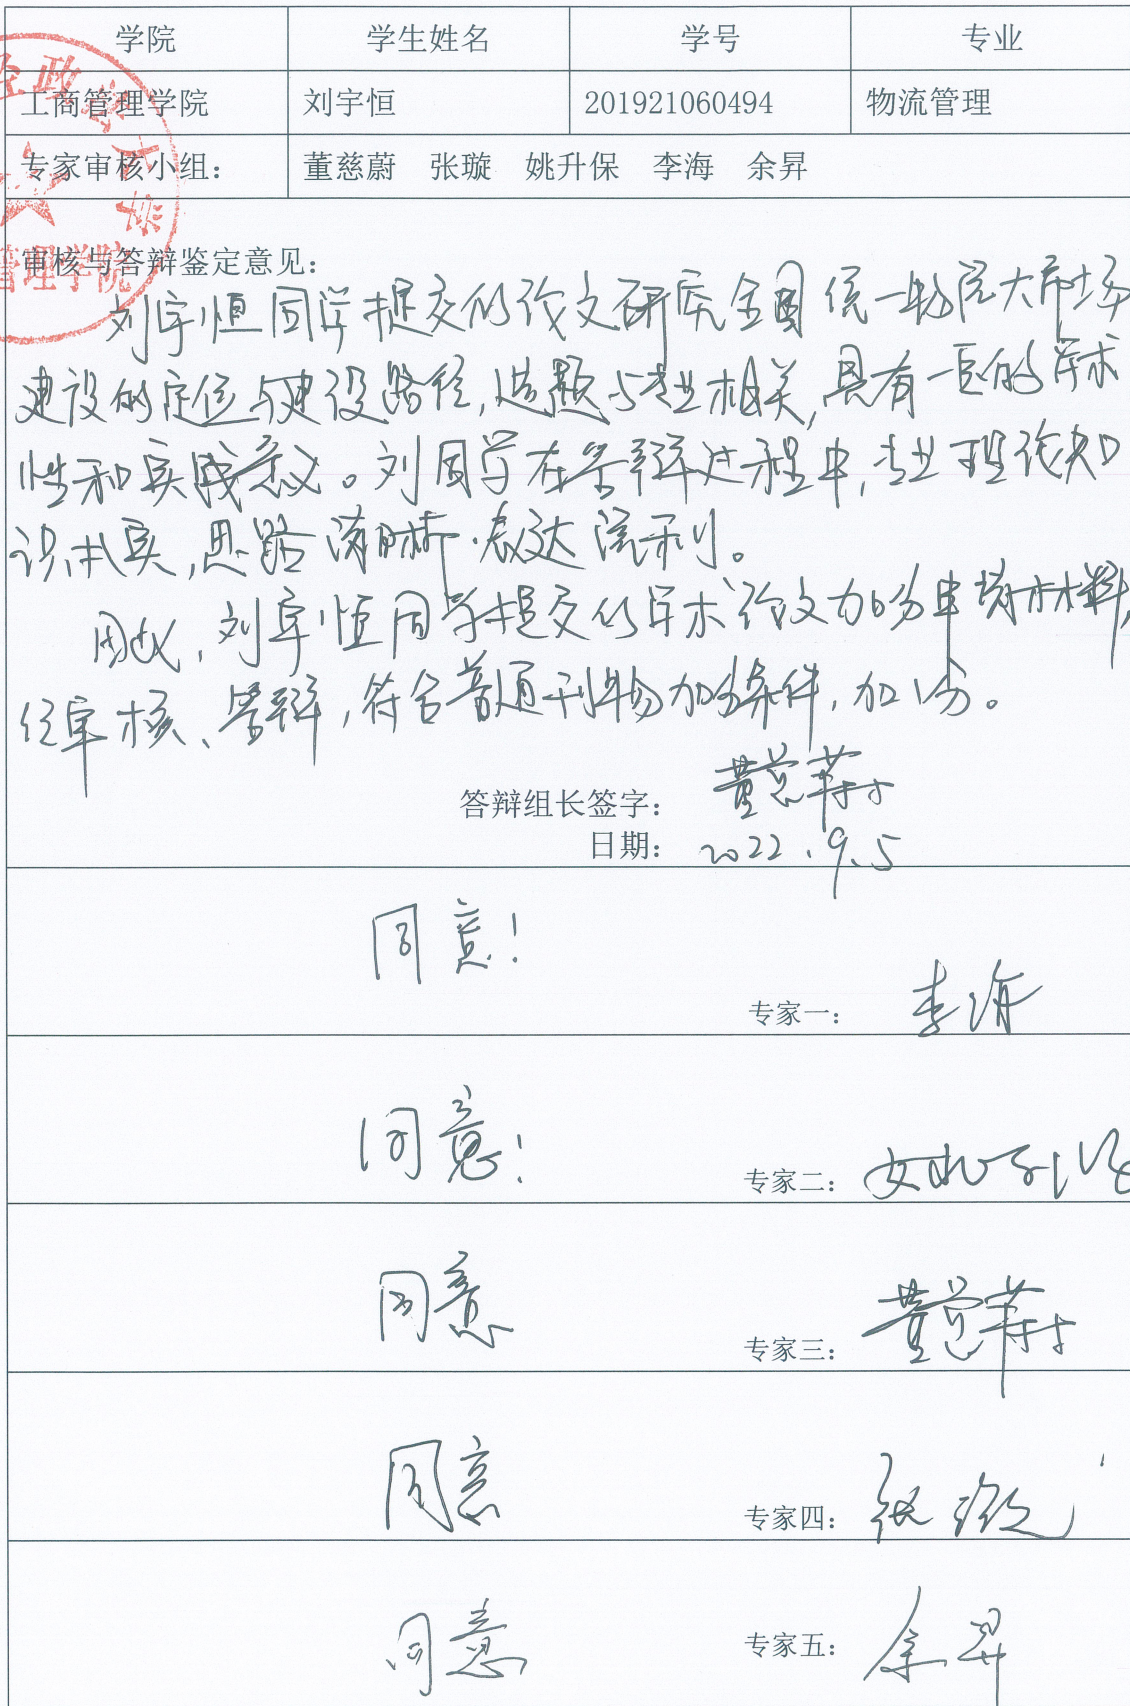 学院 学生姓名 学号 专业
工商管理学院 刘宇恒 201921060494 物流管理
专家审核小组： 董慈蔚 张璇 姚升保 李海 余昇
经政法大学
管理学院
审核与答辩鉴定意见：
刘宇恒同学提交的论文研究全国统一物流大市场
建设的定位与建设路径，选题与专业相关，具有一定的学术
性和实践意义。刘同学在答辩过程中，专业理论知
识扎实，思路清晰，表达流利。
因此，刘宇恒同学提交的学术论文加分申请材料，
经审核、答辩，符合普通刊物加分条件，加1分。
答辩组长签字： 董慈蔚
日期： 2022.9.5
同意！
专家一： 李海
同意！
专家二： 姚升保
同意
专家三： 董慈蔚
同意
专家四： 张璇
同意
专家五： 余昇